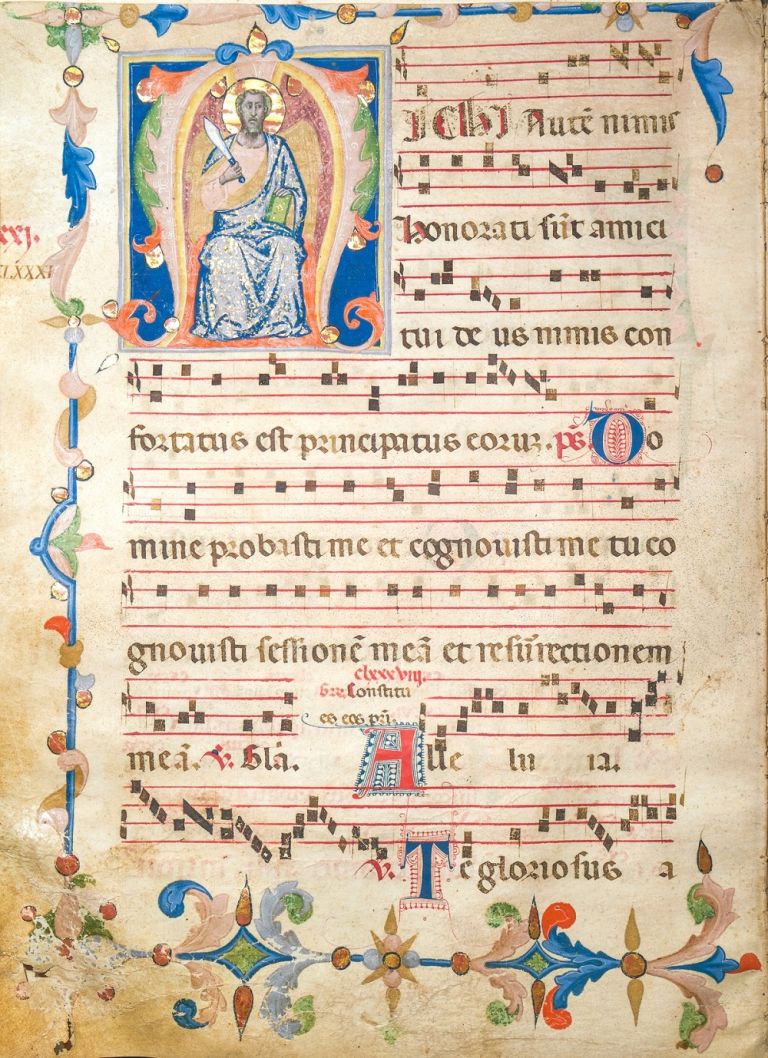 ICHI Autē nimis
honorati sūt amici
tui de us nimis con
fortatus est principatus eoruꝫ. ps. Do
mine probasti me et cognouisti me tu co
gnouisti sessionē meā et resurrectionem
clxxxviij.
Constitu
es eos pri
meā. V. Glā. Alle lu ia.
V. Te gloriosus a